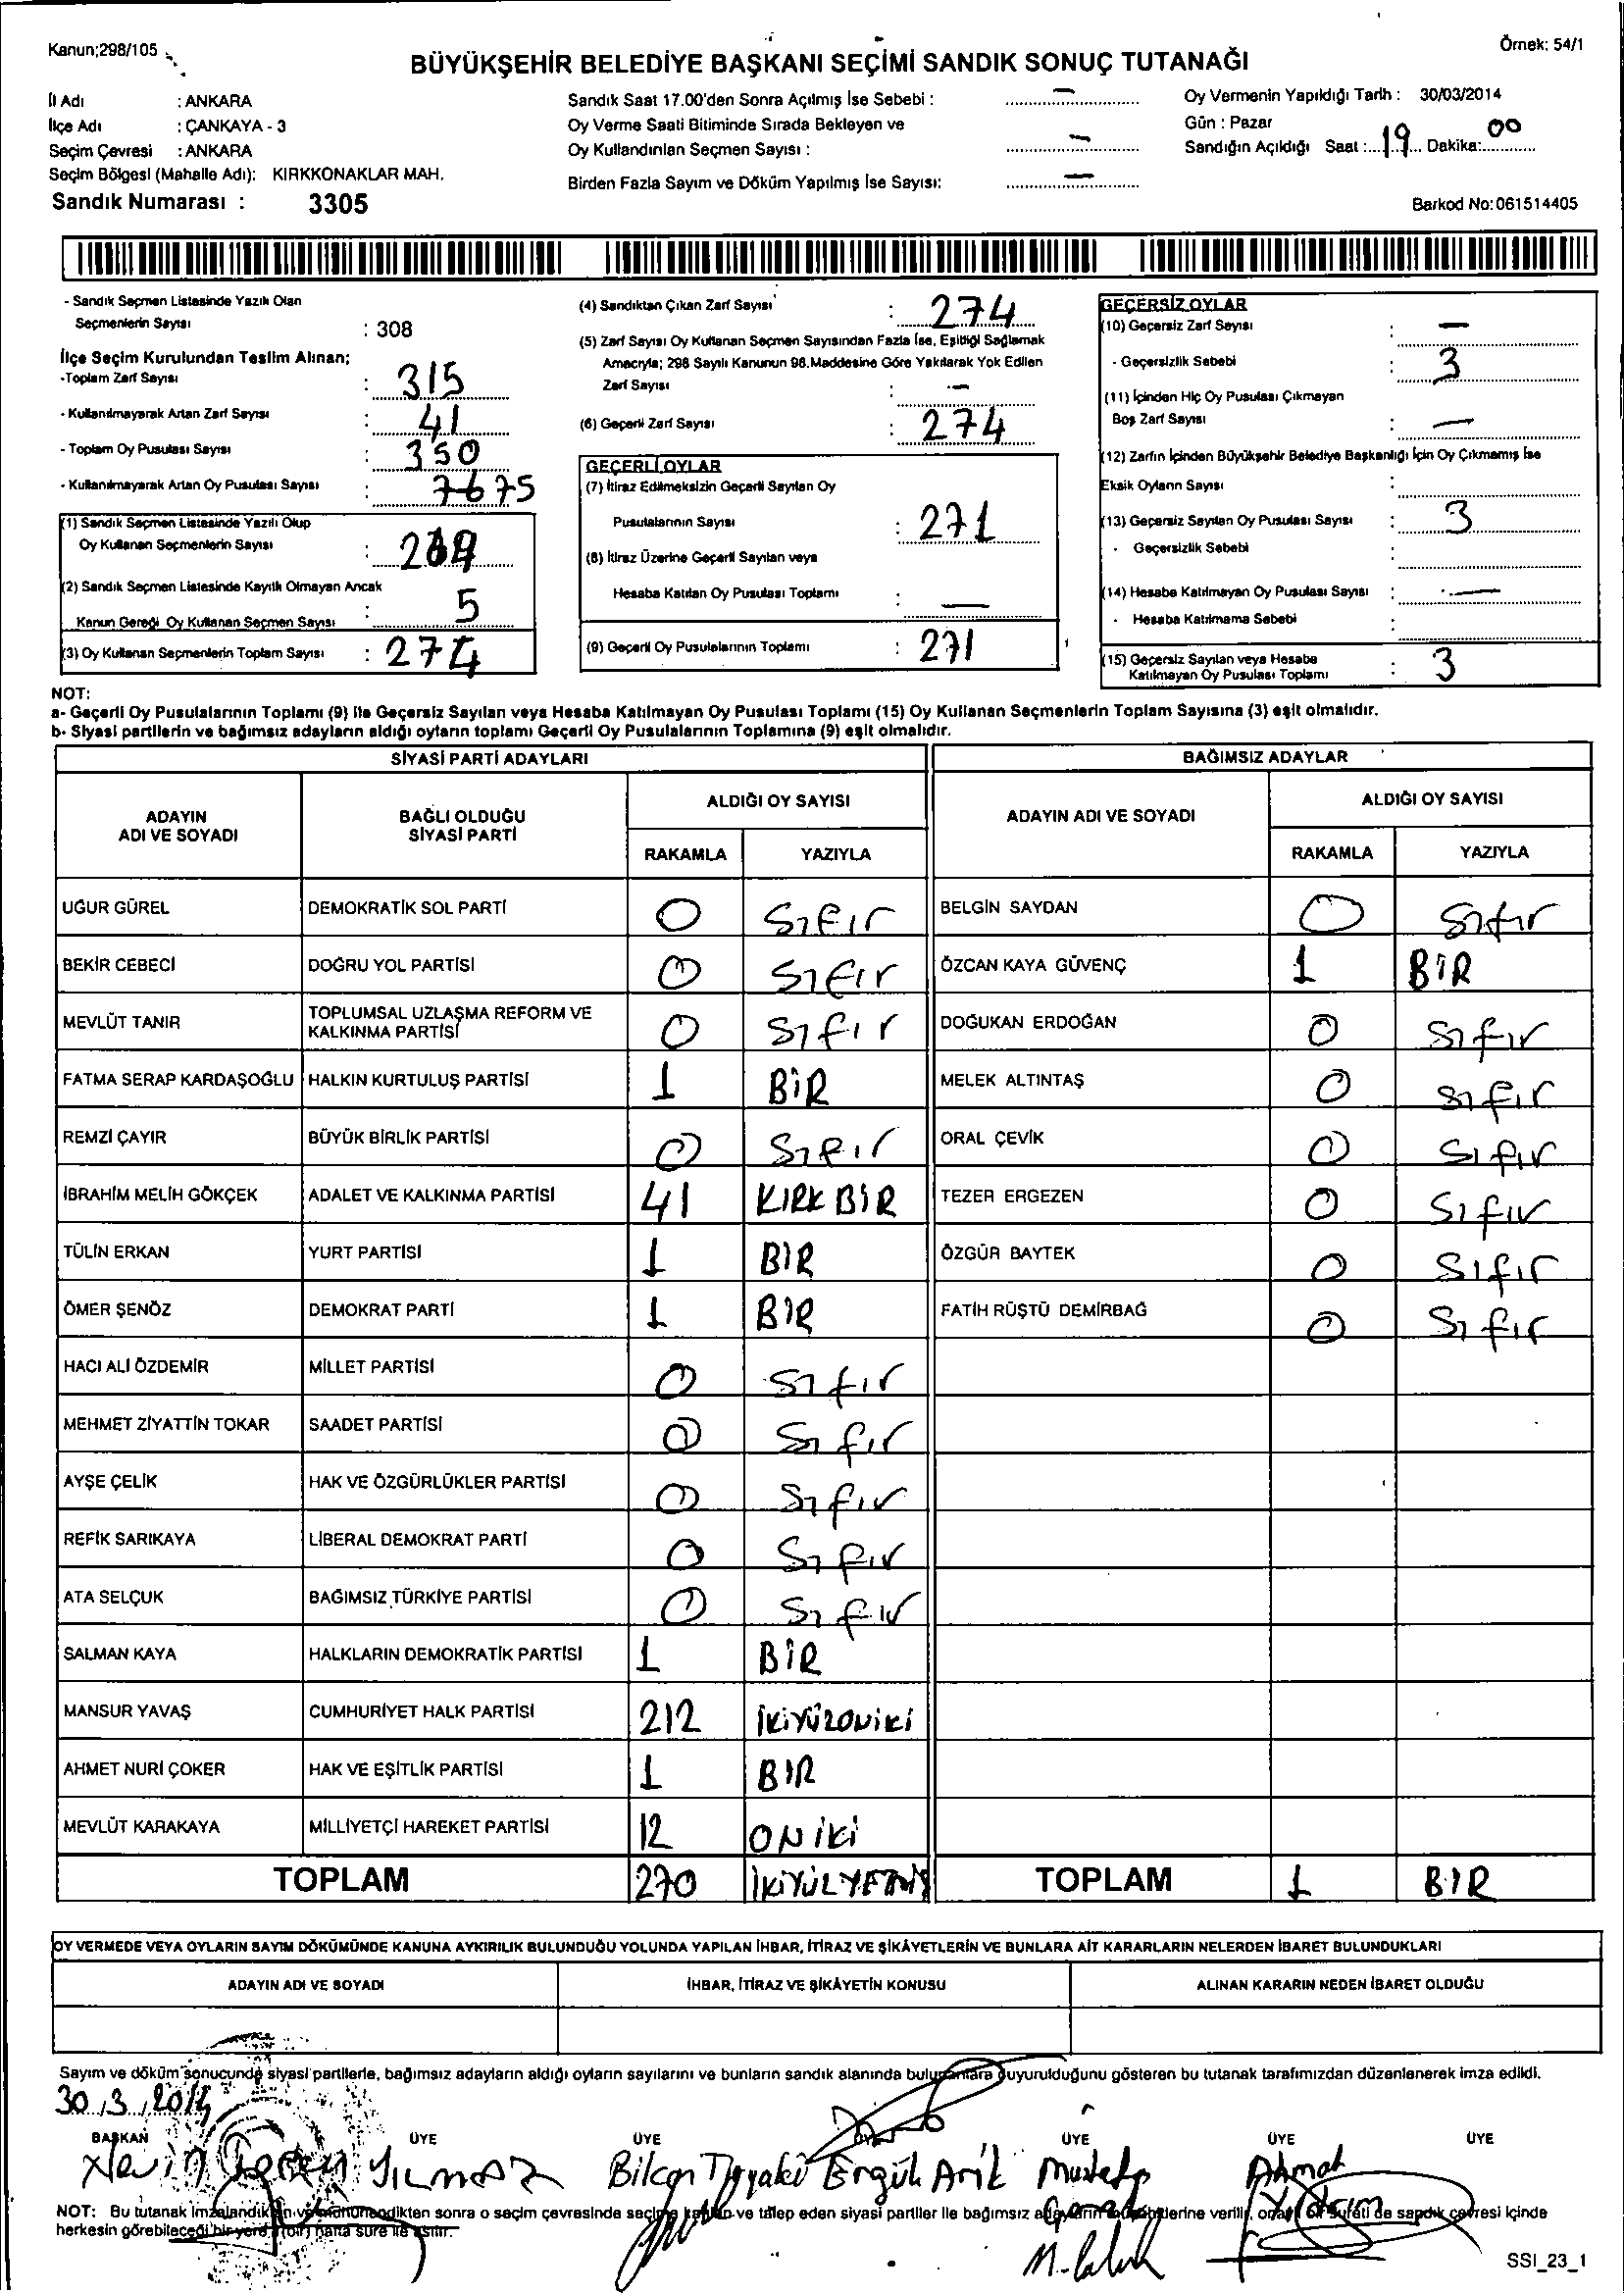 Kanun;298/105
Örnek: 54/1
BÜYÜKŞEHİR BELEDİYE BAŞKANI SEÇİMİ SANDIK SONUÇ TUTANAĞI
İl Adı : ANKARA
İlçe Adı : ÇANKAYA - 3
Seçim Çevresi : ANKARA
Seçim Bölgesi (Mahalle Adı): KIRKKONAKLAR MAH.
Sandık Numarası : 3305
Sandık Saat 17.00'den Sonra Açılmış İse Sebebi : —
Oy Verme Saati Bitiminde Sırada Bekleyen ve
Oy Kullandırılan Seçmen Sayısı : —
Birden Fazla Sayım ve Döküm Yapılmış İse Sayısı: —
Oy Vermenin Yapıldığı Tarih : 30/03/2014
Gün : Pazar
Sandığın Açıldığı Saat : 19 Dakika: 00
Barkod No:061514405
- Sandık Seçmen Listesinde Yazılı Olan
Seçmenlerin Sayısı : 308
İlçe Seçim Kurulundan Teslim Alınan;
-Toplam Zarf Sayısı : 315
- Kullanılmayarak Artan Zarf Sayısı : 41
- Toplam Oy Pusulası Sayısı : 350
- Kullanılmayarak Artan Oy Pusulası Sayısı :
(1) Sandık Seçmen Listesinde Yazılı Olup
Oy Kullanan Seçmenlerin Sayısı : 269
(2) Sandık Seçmen Listesinde Kayıtlı Olmayan Ancak
Kanun Gereği Oy Kullanan Seçmen Sayısı : 5
(3) Oy Kullanan Seçmenlerin Toplam Sayısı : 274
(4) Sandıktan Çıkan Zarf Sayısı : 274
(5) Zarf Sayısı Oy Kullanan Seçmen Sayısından Fazla İse, Eşitliği Sağlamak
Amacıyla; 298 Sayılı Kanunun 98.Maddesine Göre Yakılarak Yok Edilen
Zarf Sayısı : —
(6) Geçerli Zarf Sayısı : 274
GEÇERLİ OYLAR
(7) İtiraz Edilmeksizin Geçerli Sayılan Oy
Pusulalarının Sayısı : 271
(8) İtiraz Üzerine Geçerli Sayılan veya
Hesaba Katılan Oy Pusulası Toplamı : —
(9) Geçerli Oy Pusulalarının Toplamı : 271
GEÇERSİZ OYLAR
(10) Geçersiz Zarf Sayısı : —
- Geçersizlik Sebebi : 3
(11) İçinden Hiç Oy Pusulası Çıkmayan
Boş Zarf Sayısı : —
(12) Zarfın İçinden Büyükşehir Belediye Başkanlığı İçin Oy Çıkmamış İse
Eksik Oyların Sayısı :
(13) Geçersiz Sayılan Oy Pusulası Sayısı : 3
- Geçersizlik Sebebi :
(14) Hesaba Katılmayan Oy Pusulası Sayısı : —
- Hesaba Katılmama Sebebi :
(15) Geçersiz Sayılan veya Hesaba
Katılmayan Oy Pusulası Toplamı : 3
NOT:
a- Geçerli Oy Pusulalarının Toplamı (9) ile Geçersiz Sayılan veya Hesaba Katılmayan Oy Pusulası Toplamı (15) Oy Kullanan Seçmenlerin Toplam Sayısına (3) eşit olmalıdır.
b- Siyasi partilerin ve bağımsız adayların aldığı oyların toplamı Geçerli Oy Pusulalarının Toplamına (9) eşit olmalıdır.
SİYASİ PARTİ ADAYLARI
ADAYIN ADI VE SOYADI
BAĞLI OLDUĞU SİYASİ PARTİ
ALDIĞI OY SAYISI
RAKAMLA YAZIYLA
UĞUR GÜREL DEMOKRATİK SOL PARTİ 0 Sıfır
BEKİR CEBECİ DOĞRU YOL PARTİSİ 0 Sıfır
MEVLÜT TANIR TOPLUMSAL UZLAŞMA REFORM VE KALKINMA PARTİSİ 0 Sıfır
FATMA SERAP KARDAŞOĞLU HALKIN KURTULUŞ PARTİSİ 1 BİR
REMZİ ÇAYIR BÜYÜK BİRLİK PARTİSİ 0 Sıfır
İBRAHİM MELİH GÖKÇEK ADALET VE KALKINMA PARTİSİ 41 KIRK BİR
TÜLİN ERKAN YURT PARTİSİ 1 BİR
ÖMER ŞENÖZ DEMOKRAT PARTİ 1 BİR
HACI ALİ ÖZDEMİR MİLLET PARTİSİ 0 Sıfır
MEHMET ZİYATTİN TOKAR SAADET PARTİSİ 0 Sıfır
AYŞE ÇELİK HAK VE ÖZGÜRLÜKLER PARTİSİ 0 Sıfır
REFİK SARIKAYA LİBERAL DEMOKRAT PARTİ 0 Sıfır
ATA SELÇUK BAĞIMSIZ TÜRKİYE PARTİSİ 0 Sıfır
SALMAN KAYA HALKLARIN DEMOKRATİK PARTİSİ 1 BİR
MANSUR YAVAŞ CUMHURİYET HALK PARTİSİ 212 İKİYÜZONİKİ
AHMET NURİ ÇOKER HAK VE EŞİTLİK PARTİSİ 1 BIR
MEVLÜT KARAKAYA MİLLİYETÇİ HAREKET PARTİSİ 12 ONİKİ
TOPLAM 270 İKİYÜZYETMİŞ
BAĞIMSIZ ADAYLAR
ADAYIN ADI VE SOYADI
ALDIĞI OY SAYISI
RAKAMLA YAZIYLA
BELGİN SAYDAN 0 Sıfır
ÖZCAN KAYA GÜVENÇ 1 BİR
DOĞUKAN ERDOĞAN 0 Sıfır
MELEK ALTINTAŞ 0 Sıfır
ORAL ÇEVİK 0 Sıfır
TEZER ERGEZEN 0 Sıfır
ÖZGÜR BAYTEK 0 Sıfır
FATİH RÜŞTÜ DEMİRBAĞ 0 Sıfır
TOPLAM 1 BIR
OY VERMEDE VEYA OYLARIN SAYIM DÖKÜMÜNDE KANUNA AYKIRILIK BULUNDUĞU YOLUNDA YAPILAN İHBAR, İTİRAZ VE ŞİKÂYETLERİN VE BUNLARA AİT KARARLARIN NELERDEN İBARET BULUNDUKLARI
ADAYIN ADI VE SOYADI İHBAR, İTİRAZ VE ŞİKÂYETİN KONUSU ALINAN KARARIN NEDEN İBARET OLDUĞU
Sayım ve döküm sonucunda siyasi partilerle, bağımsız adayların aldığı oyların sayılarını ve bunların sandık alanında bulunanlara duyurulduğunu gösteren bu tutanak tarafımızdan düzenlenerek imza edildi.
30.3.2014
BAŞKAN ÜYE ÜYE ÜYE ÜYE ÜYE ÜYE
YILMAZ Bilcan Ergül Arik Mustafa Ahmet
Yıldırım
NOT: Bu tutanak imzalandıktan ve mühürlendikten sonra o seçim çevresinde seçime katılan ve talep eden siyasi partiler ile bağımsız adayların müşahitlerine verilir, onaylı bir sureti de sandık çevresi içinde
herkesin görebileceği bir yere (bir) hafta süre ile asılır.
SSI_23_1